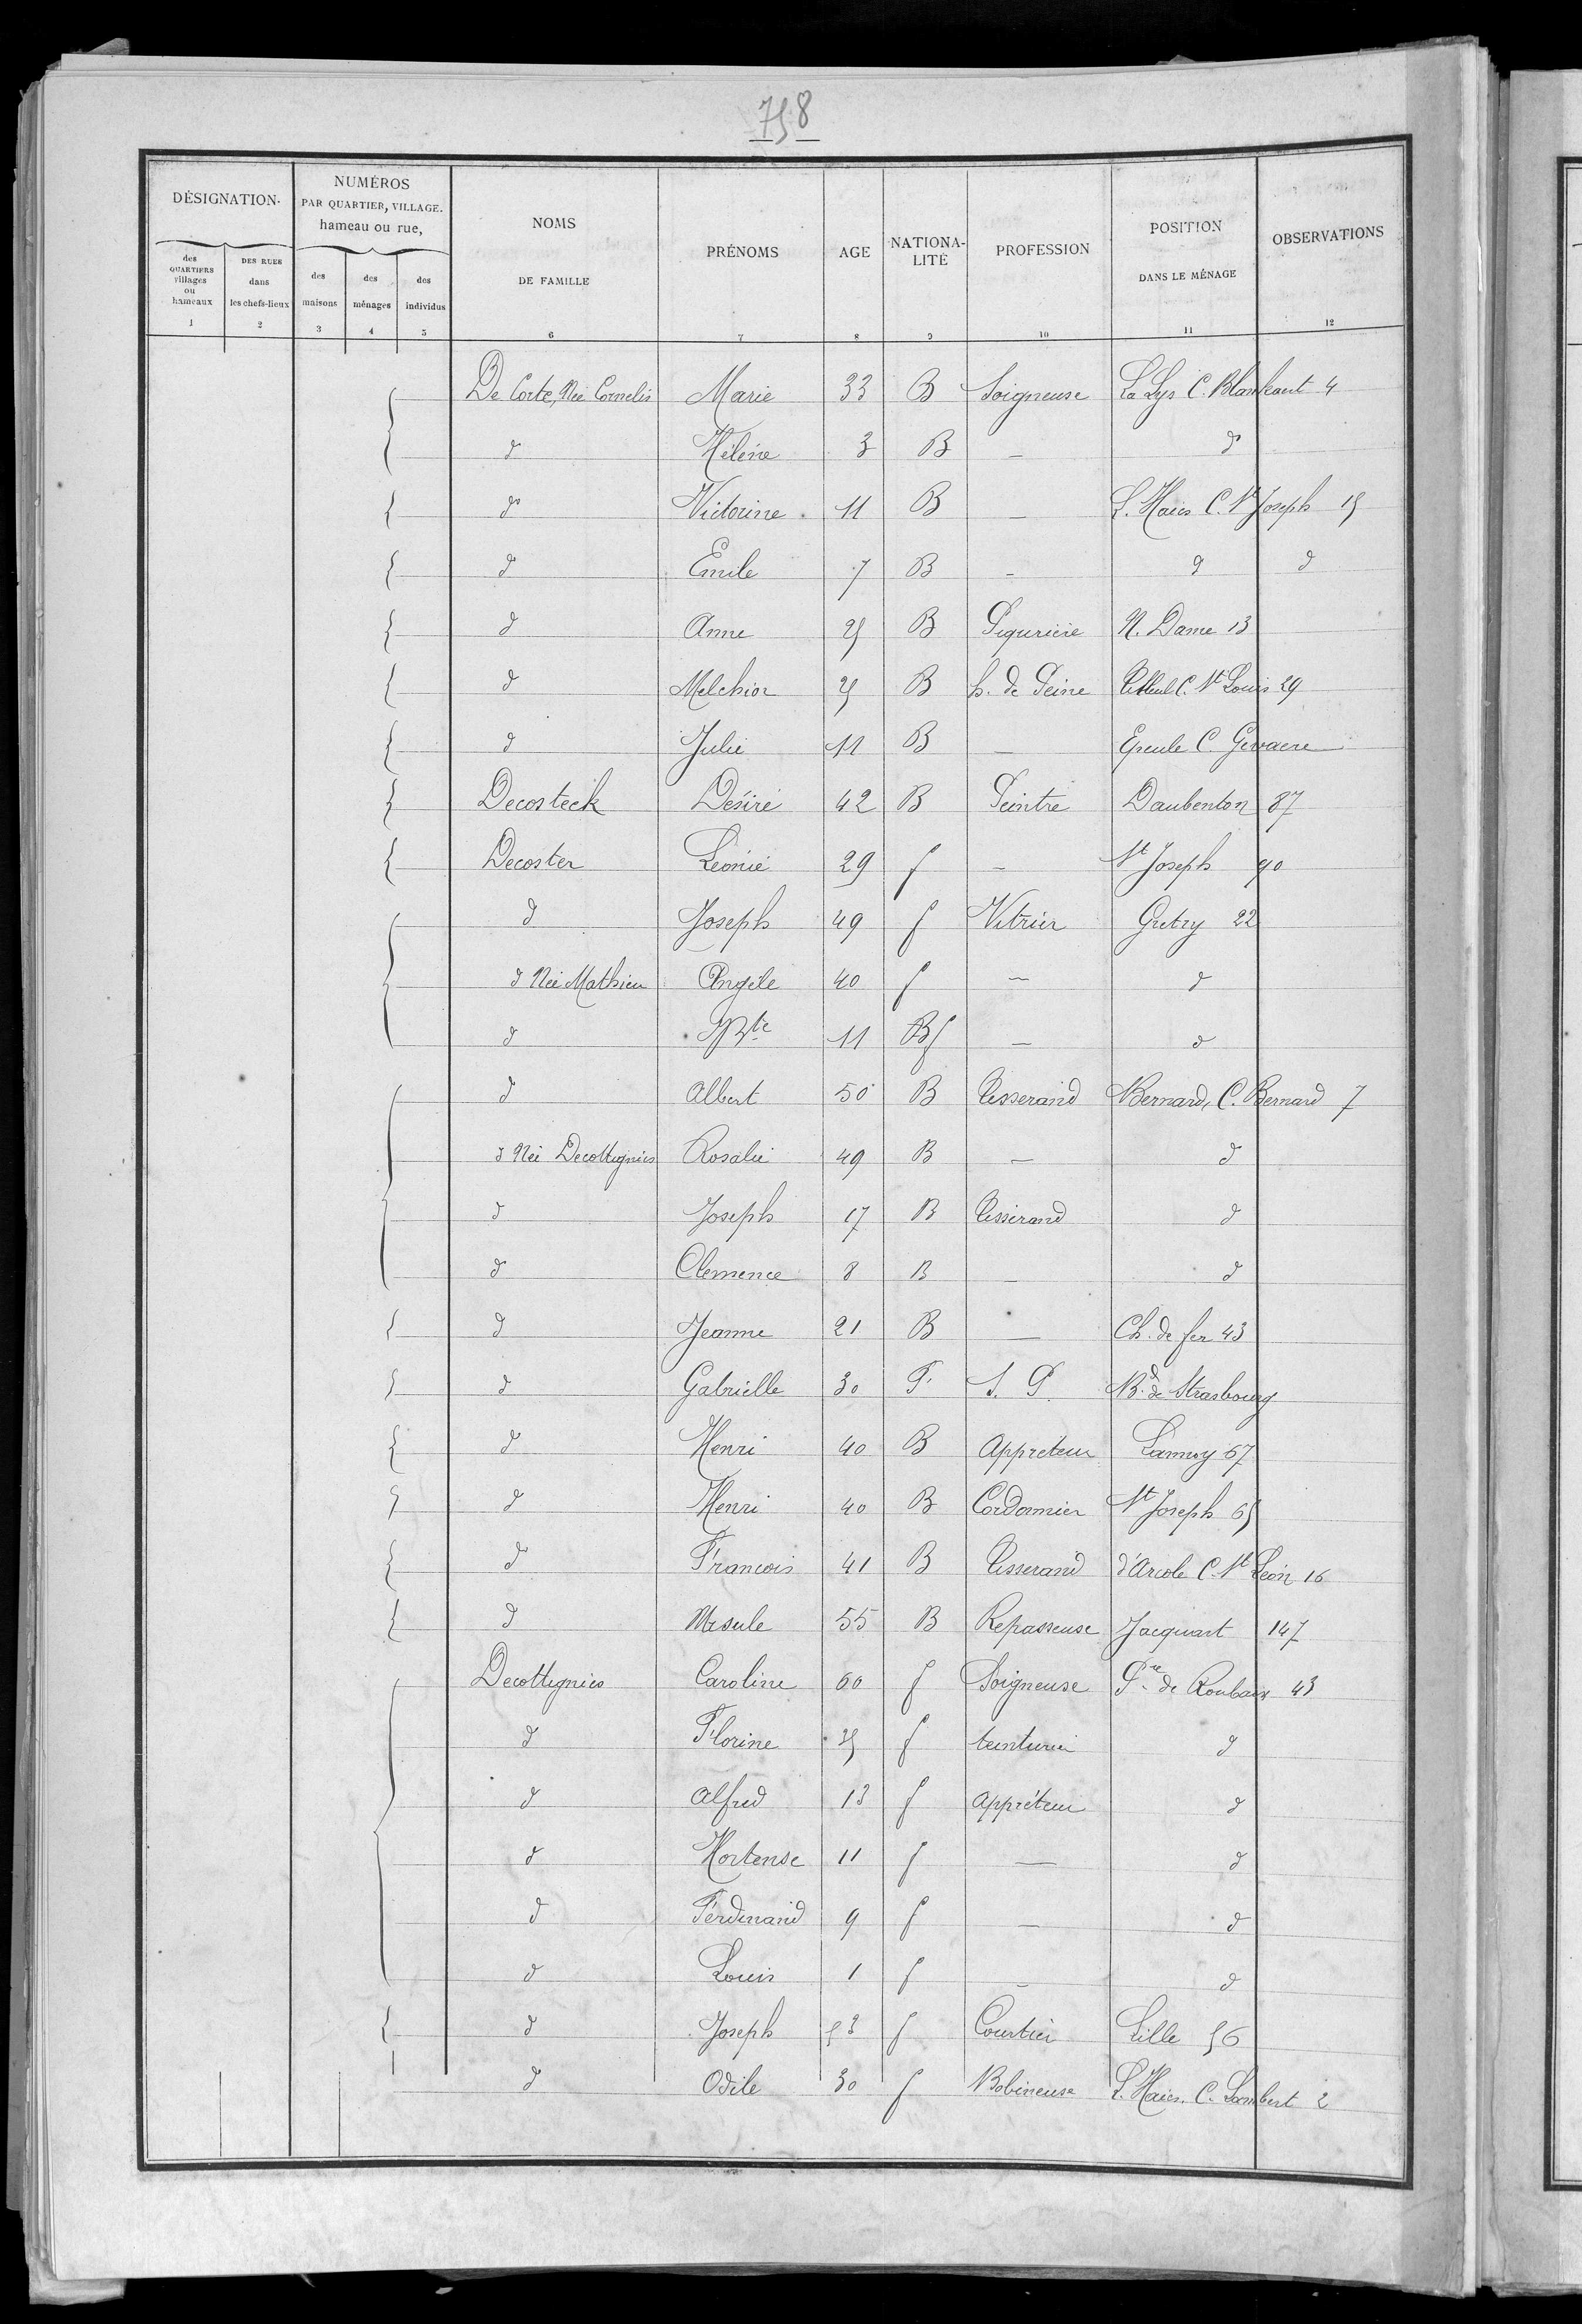 758
DÉSIGNATION
NUMÉROS
PAR QUARTIER, VILLAGE.
hameau ou rue,
des QUARTIERS villages ou hameaux
DES RUES dans les chefs-lieux
des maisons
des ménages
des individus
NOMS DE FAMILLE
PRÉNOMS
AGE
NATIONA-LITÉ
PROFESSION
POSITION DANS LE MÉNAGE
OBSERVATIONS
1 2 3 4 5 6 7 8 9 10 11 12
De Corte, Née Cornelis Marie 33 B Soigneuse La Lys C. Blankaert 4
d Hélène 3 B — d
d Victorine 11 B — L. Haies C. St Joseph 15
d Emile 7 B — d d
d Anne 25 B Piqurière N. Dame 13
d Melchior 25 B h. de Peine Tilleul C. St Louis 29
d Julie 11 B — Epeule C. Gevaere
Decosteck Désiré 42 B Peintre Daubenton 87
Decoster Léonie 29 f — St Joseph 90
d Joseph 49 f Vitrier Gretry 22
d Née Mathieu Angèle 40 f — d
d JBte 11 Bf — d
d Albert 50 B Tisserand Bernard, C. Bernard 7
d Née Decottignies Rosalie 49 B — d
d Joseph 17 B Tisserand d
d Clemence 8 B — d
d Jeanne 21 B — Ch. de fer 43
d Gabrielle 30 F S. P. Bd de Strasbourg
d Henri 40 B Appreteur Lannoy 67
d Henri 40 B Cordonnier St Joseph 65
d Francois 41 B Tisserand d'Arcole C. St Léon 16
d Ursule 55 B Repasseuse Jacquart 147
Decottignies Caroline 60 f Soigneuse Pre de Roubaix 43
d Florine 35 f teinturier d
d Alfred 13 f Apprêteur d
d Hortense 11 f — d
d Ferdinand 9 f — d
d Louis 1 f — d
d Joseph 53 f Courtier Lille 56
d Odile 30 f Bobineuse L. Haies. C. Lambert 2